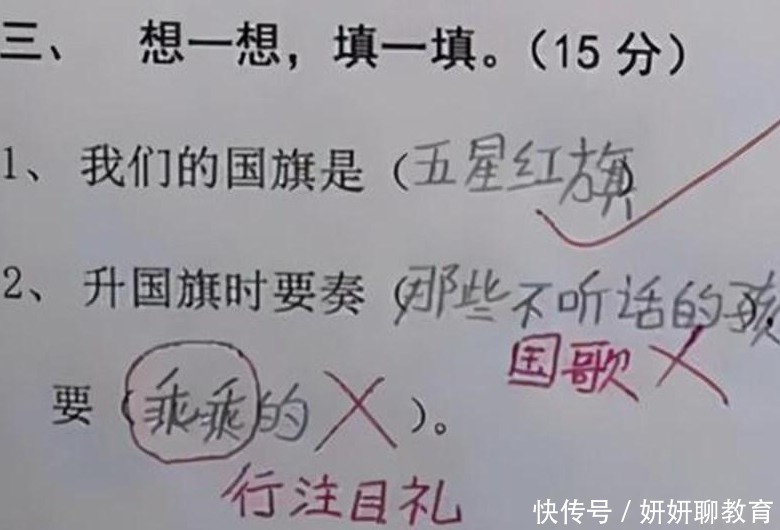 三、 想一想，填一填。（15 分）
1、我们的国旗是（五星红旗）
2、升国旗时要奏（那些不听话的孩
国歌
要（乖乖的 ）。
行注目礼
快传号 / 妍妍聊教育